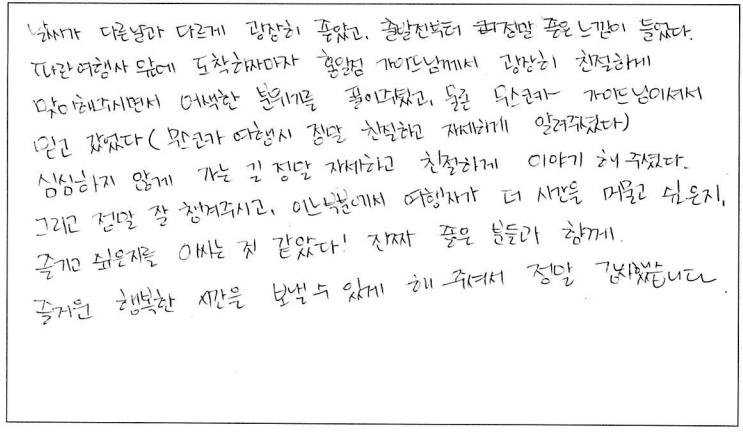 날씨가 다른날과 다르게 굉장히 좋았고, 출발전부터 정말 좋은 느낌이 들었다.
파란여행사 앞에 도착하자마자 홍일점 가이드님께서 굉장히 친절하게
맞이해주시면서 어색한 분위기를 풀어주셨고, 물론 무스코카 가이드님이셔서
믿고 갔었다 (무스코카 여행시 정말 친절하고 자세하게 알려주셨다)
심심하지 않게 가는 길 정말 자세하고 친절하게 이야기 해 주셨다.
그리고 정말 잘 챙겨주시고, 어느부분에서 여행자가 더 시간을 머물고 싶은지,
즐기고 싶은지를 아시는 것 같았다! 진짜 좋은 분들과 함께.
즐거운 행복한 시간을 보낼 수 있게 해 주셔서 정말 감사했습니다